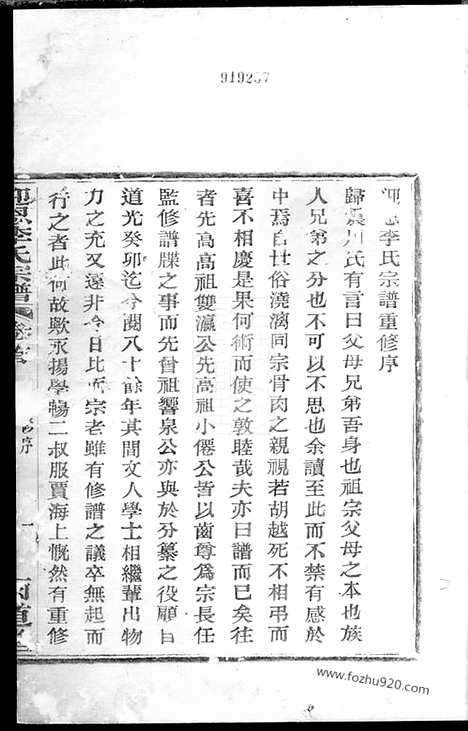 919207
李氏宗譜重修序
歸震川氏有言曰父母兄弟吾身也祖宗父母之本也族
人兄弟之分也不可以不思也余讀至此而不禁有感於
中焉自世俗澆漓同宗骨肉之親視若胡越死不相弔而
喜不相慶是果何術而使之敦睦哉夫亦曰譜而已矣往
者先高高祖雙瀛公先高祖小僊公皆以齒尊為宗長任
監修譜牒之事而先曾祖響泉公亦與於分纂之役顧自
道光癸卯迄今閱八十餘年其間文人學士相繼輩出物
力之充又遠非今日比而宗老雖有修譜之議卒無起而
行之者此何故歟永揚學暢二叔服賈海上慨然有重修
李氏宗譜 卷首
序
一
www.fozhu920.com